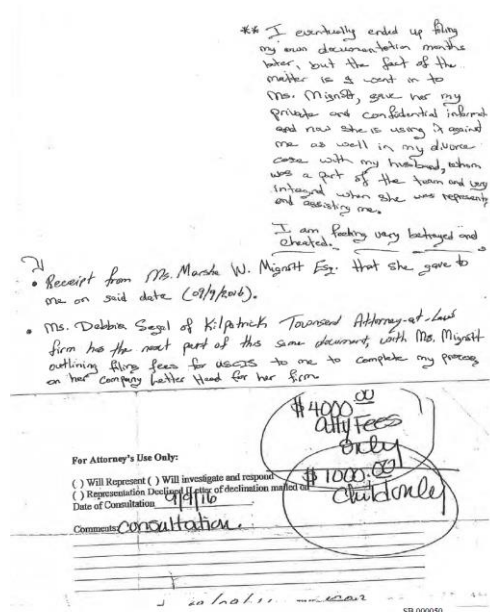 ** I eventually ended up filing
my own documentation months
later, but the fact of the
matter is I went in to
Ms. Mignott, gave her my
private and confidential informat
and now she is using it against
me as well in my divorce
case with my husband, whom
was a part of the team and very
Integral when she was represent
and assisting me.
I am feeling very betrayed and
cheated.
• Receipt from Ms. Marsha W. Mignott Esq. that she gave to
me on said date (09/9/2016).
• Ms. Debbie Segal of Kilpatrick Townsend Attorney-at-Law
firm has the next part of this same document, with Ms. Mignott
outlining filing fees for USCIS to me to complete my process
on her company Letter Head for her firm
$4000.00
atty Fees
only
For Attorney's Use Only:
( ) Will Represent ( ) Will investigate and respond
$1000.00
( ) Representation Declined Letter of declination mailed on
Child only
Date of Consultation 9/9/16
Comments: Consultation.
SB 000050